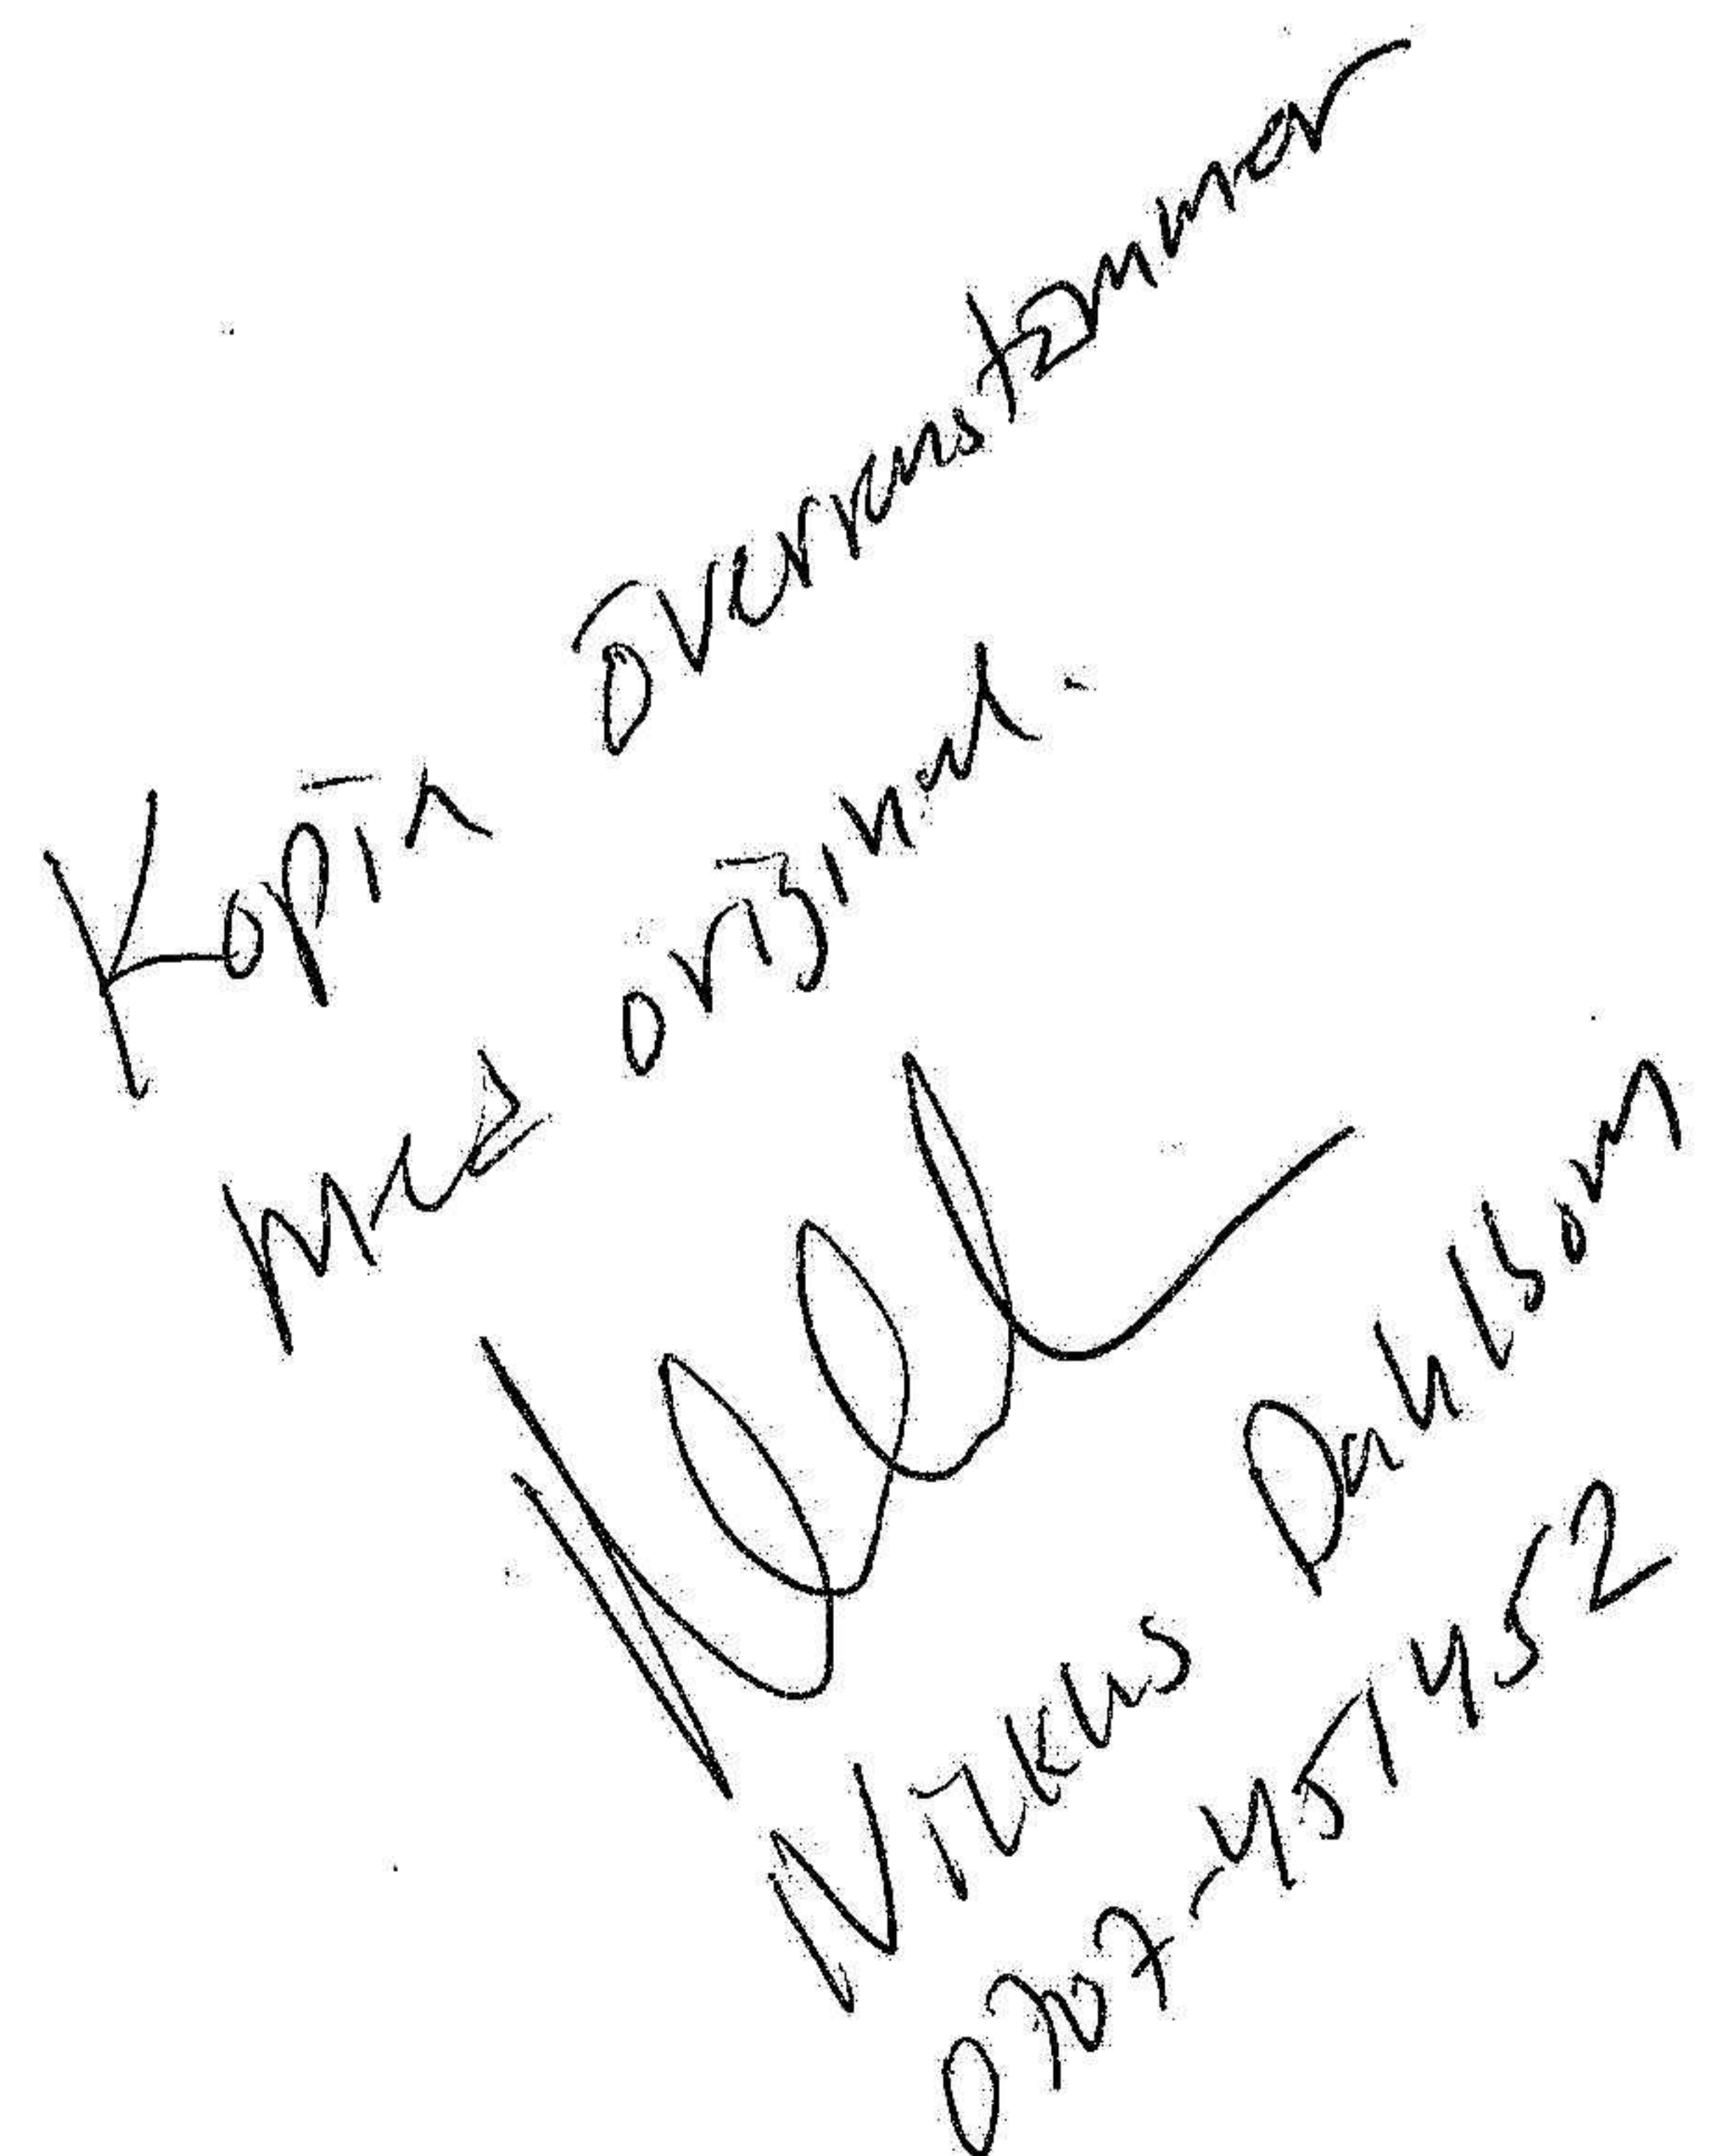 Kopia överensstämmer
med original.
Niklas Dahlbom
0707-451452